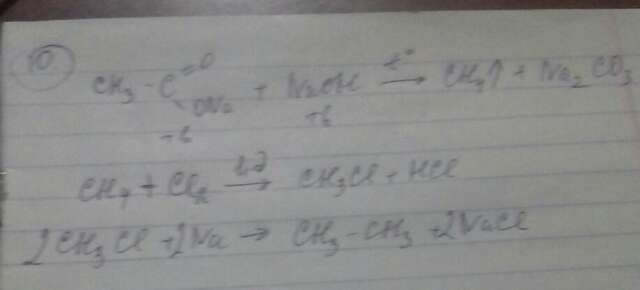 10
CH₃ - C =O ONa + NaOH t° → CH₄↑ + Na₂CO₃
CH₄ + Cl₂ → CH₃Cl + HCl
2CH₃Cl + 2Na → CH₃ - CH₃ + 2NaCl